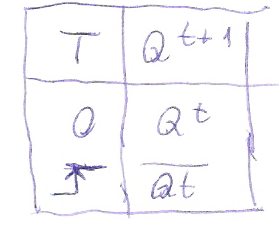 T Q^t+1
0 Q^t
↑ Q̅t̅